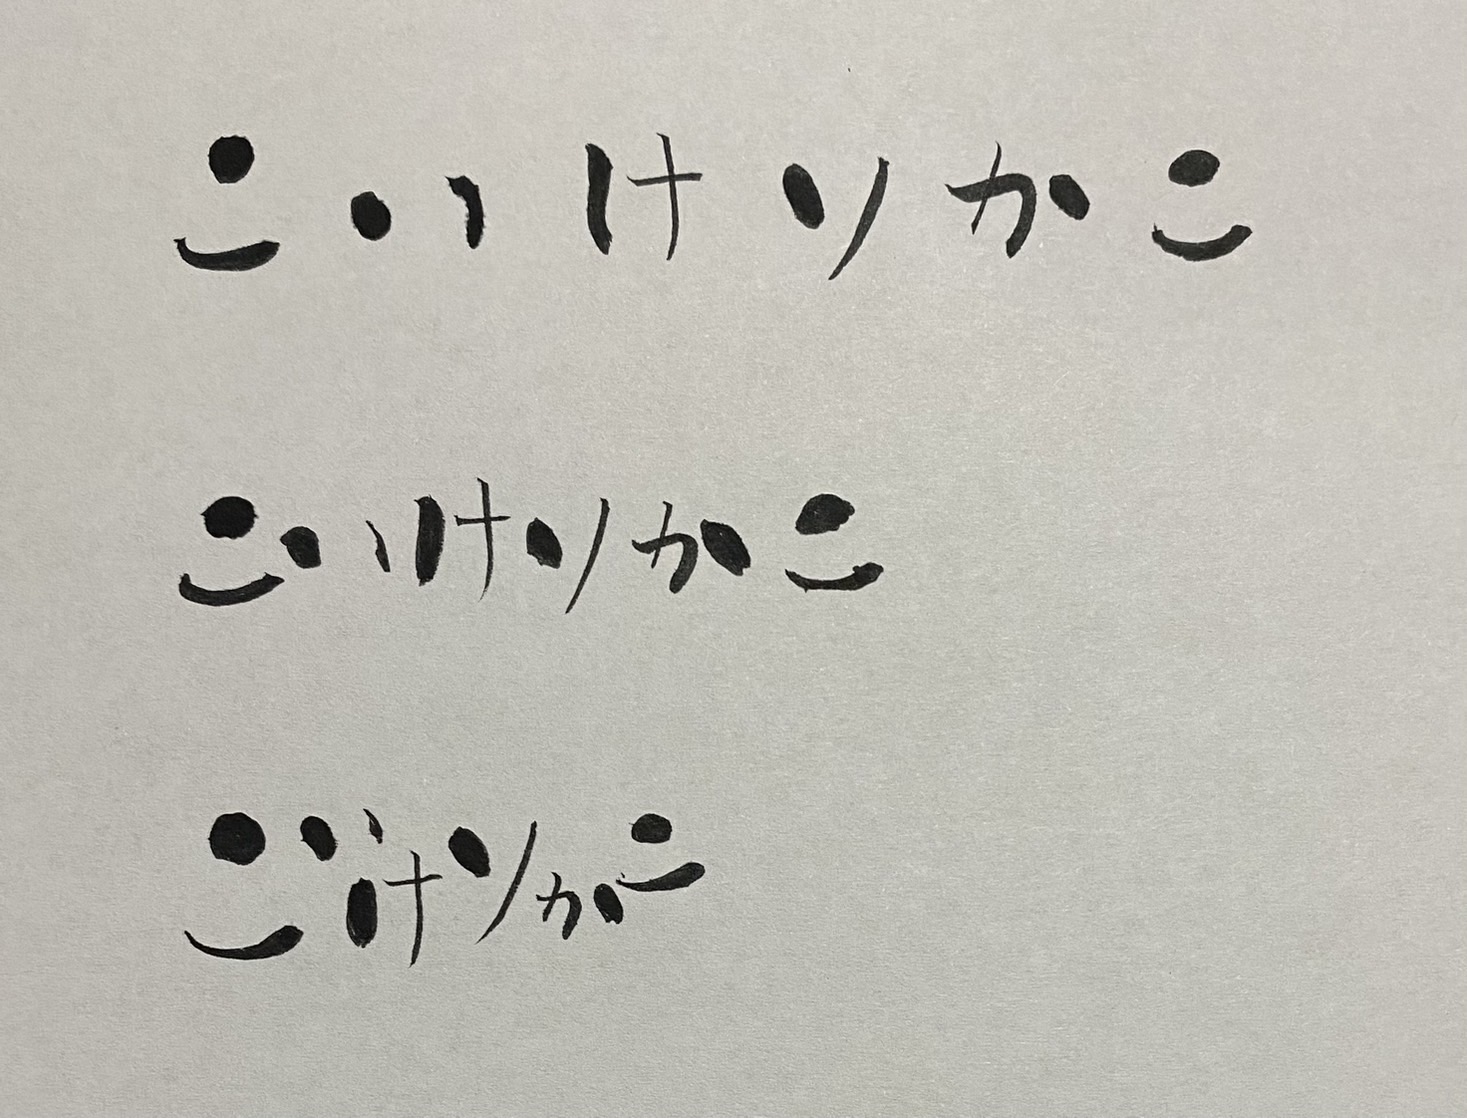 こいけりかこ
こいけりかこ
こいけりかこ